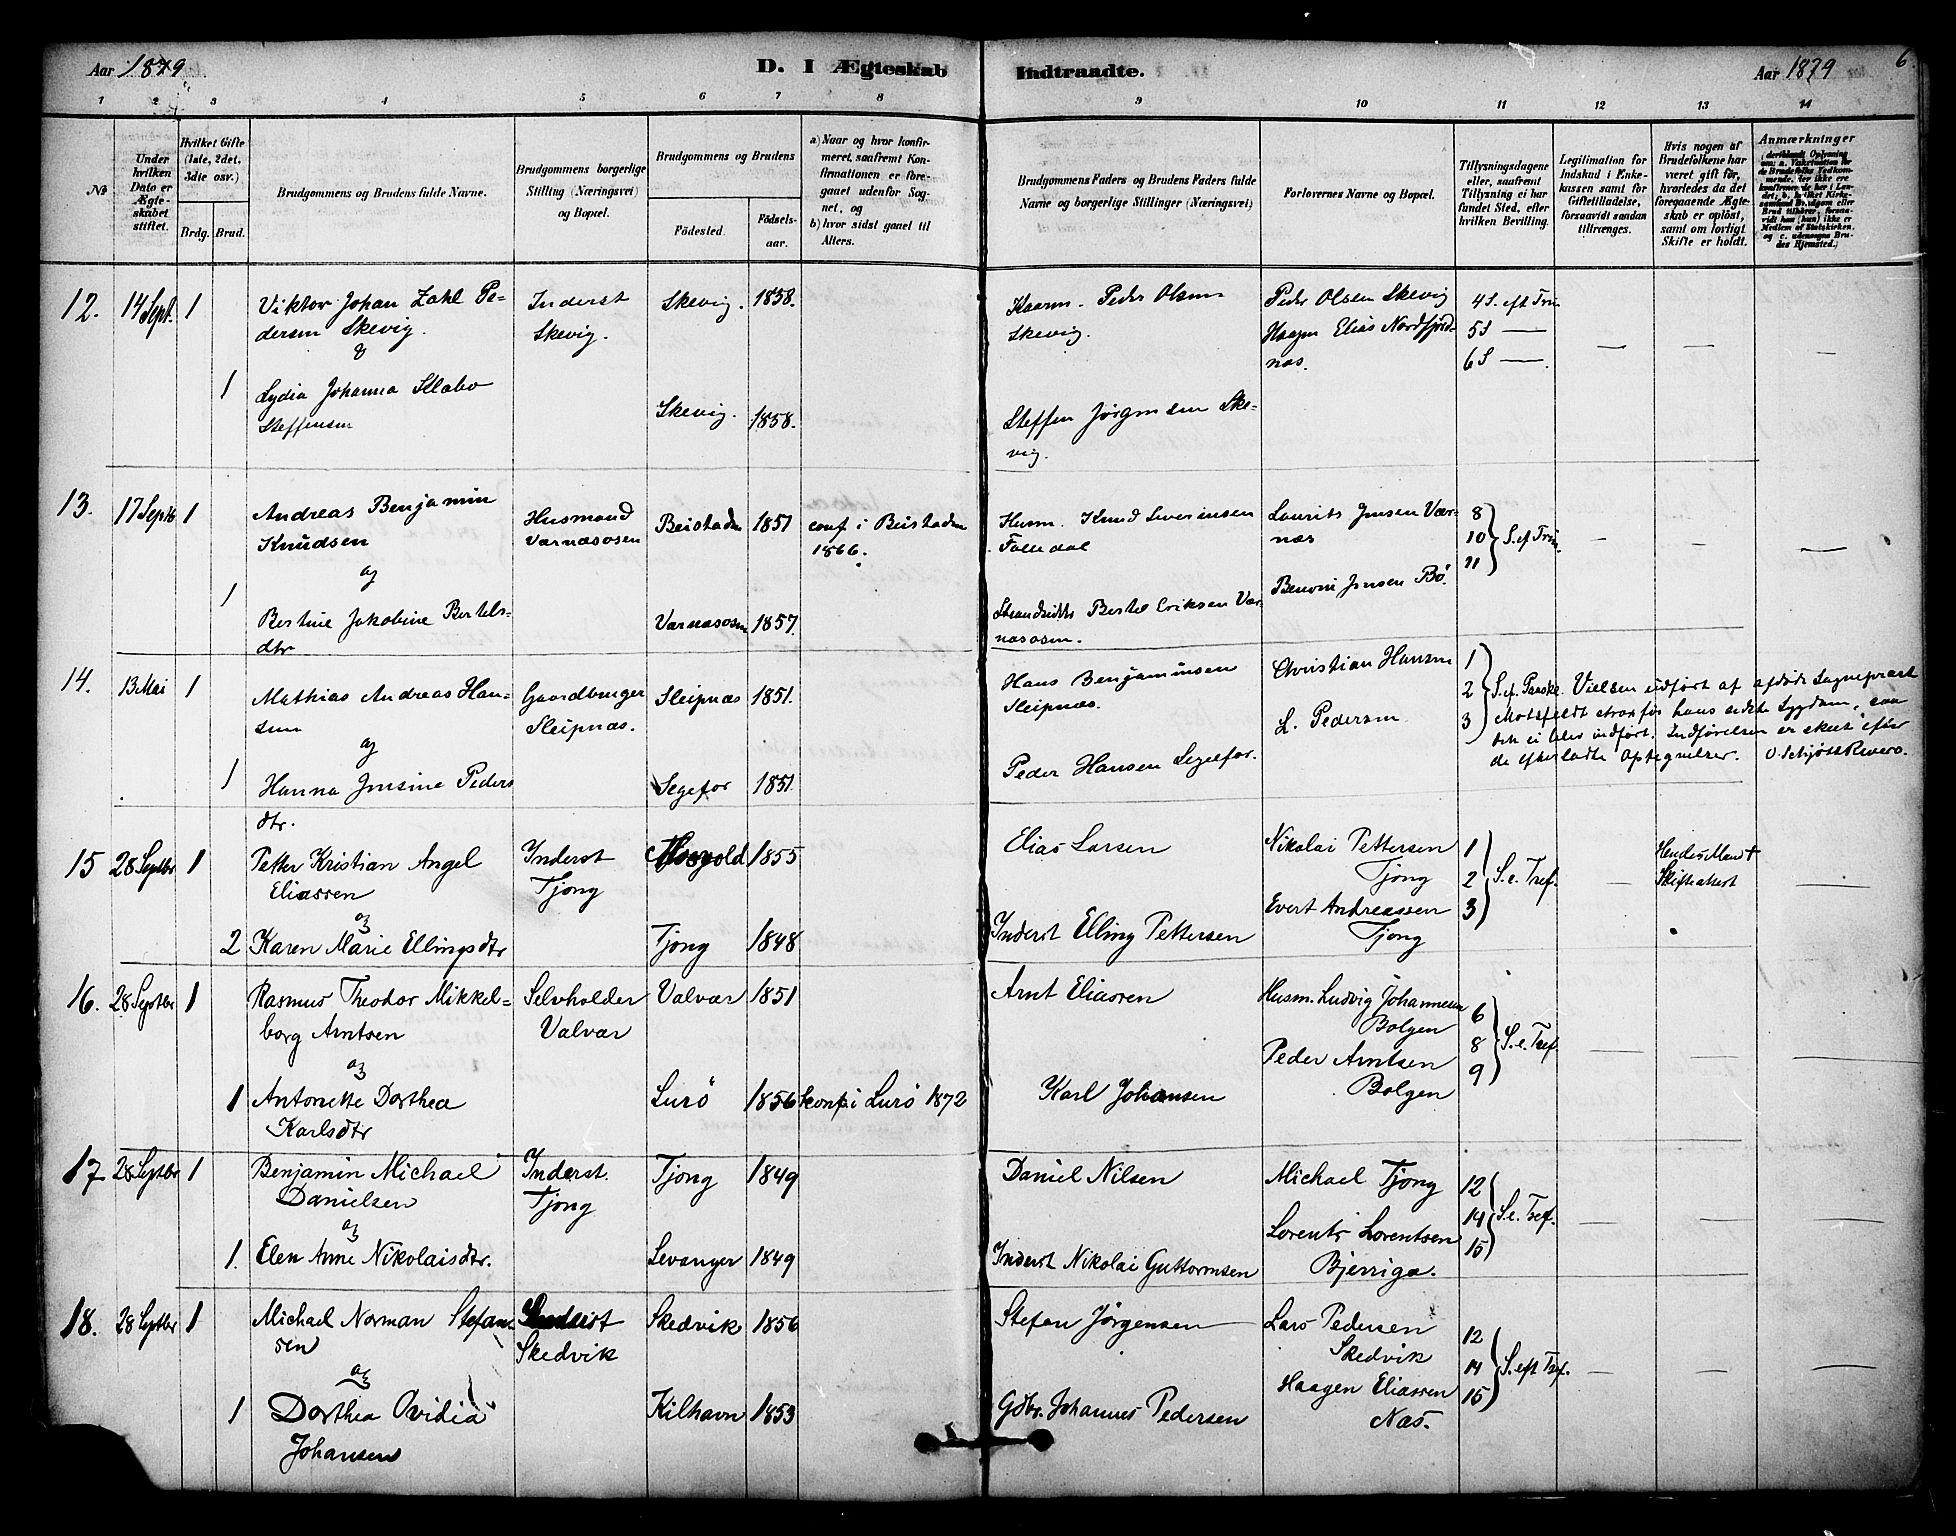 Aar 1879
D. I Ægteskab Indtraadte.
Aar 1879
6.
1 2 3 4 5 6 7 8 9 10 11 12 13 14
No
Under hvilken Dato er Ægteskabet stiftet.
Hvilket Gifte (1ste, 2det, 3die osv.)
Brdg. Brud.
Brudgommens og Brudens fulde Navne.
Brudgommens borgerlige Stilling (Næringsvei) og Bopæl.
Brudgommens og Brudens
Fødested. Fødselsaar.
a) Naar og hvor konfirmeret, saafremt Konfirmationen er foregaaet udenfor Sognet, og
b) hvor sidst gaaet til Alters.
Brudgommens Faders og Brudens Faders fulde Navne og borgerlige Stillinger (Næringsvei)
Forlovernes Navne og Bopæl.
Tillysningsdagene eller, saafremt Tillysning ei har fundet Sted, efter hvilken Bevilling.
Legitimation for Indskud i Enkekassen samt for Giftetilladelse, forsaavidt saadan tiltrænges.
Hvis nogen af Brudefolkene har været gift før, hvorledes da det foregaaende Ægteskab er opløst, samt om lovligt Skifte er holdt.
Anmærkninger
12. 14 Sept. 1 Viktor Johan Zahl Pe- Inderst Skevig. 1858. Peder Olsen Peder Olsen Skevig 4 S. eft Tri.
dersen Skevig. Skevig. Skevig. Haagen Elias Nordfjord- 5 S —
& næs. 6 S —
1 Lydia Johanna Klæbo Skevig. 1858. Steffen Jørgensen Ske-
Steffensen vig.
13. 17 Septb 1 Andreas Benjamin Husmand Beistaden 1851 conf. i Beistaden Husm. Knud Severinsen Laurits Jensen Vær- 8
Knudsen Værnæsosen 1866. Folledal næs 10 S. ef Trin.
og 11
1 Bertine Jakobine Bertels- Værnæsosen 1857. Strandsidder Bertel Eriksen Vær- Benoni Jensen Bö.
dtr næsosen.
14. 13 Mai 1 Mathias Andreas Han- Gaardbruger Sleipnæs 1851. Hans Benjaminsen Christian Hansen 1
sen Sleipnæs. Sleipnæs. L. Pedersen 2 S. ef. Paaske. Vielsen udført af afdøde Sognepræst
og 3 Motzfeldt strax før hans sidste Sygdom, saa
1 Hanna Jensine Peders Segefor 1851. Peder Hansen Segelfor. den ei blev indført. Indførelsen er skeet efter
dtr. de efterladte Optegnelser. O. Schjøtt
15 28 Septbr 1 Petter Kristian Angel Inderst 1855 Elias Larsen Nikolai Pettersen 1 Hendes Mand †
Eliassen Tjong Tjong 2 S. e. Tref. Skifteattest
og Evert Andreassen 3
2 Karen Marie Ellingsdtr Tjong 1848 Inderst Elling Pettersen Tjong
16. 28 Septbr 1 Rasmus Theodor Mikkel- Selvholder Valvær 1851 Arnt Eliassen Husm. Ludvig Johannesen 6
borg Arntsen Valvær Bolgen 8 S. e. Tref.
og Peder Arntsen 9
1 Antonette Dorthea Lurö 1856 konf. i Lurö 1872 Karl Johansen Bolgen
Karlsdtr
17. 28 Septbr 1 Benjamin Michael Inderst. Tjong 1849 Daniel Nilsen Michael Tjong 12
Danielsen Tjong 14 S. e. Tref.
og Lorents Lorentsen 15
1. Elen Anne Nikolaisdtr. Levanger 1849 Inderst Nikolai Guttormsen Bjerriga.
18. 28 Septbr 1 Michael Norman Stefan- Inderst Skedvik 1856 Stefan Jørgensen Lars Pedersen 12
sen Skedvik Skedvik 14 S. eft Tref.
og Haagen Eliassen 15
1 Dorthea Ovidia Kilhavn 1853 Gdbr. Johannes Pedersen Næs.
Johansen